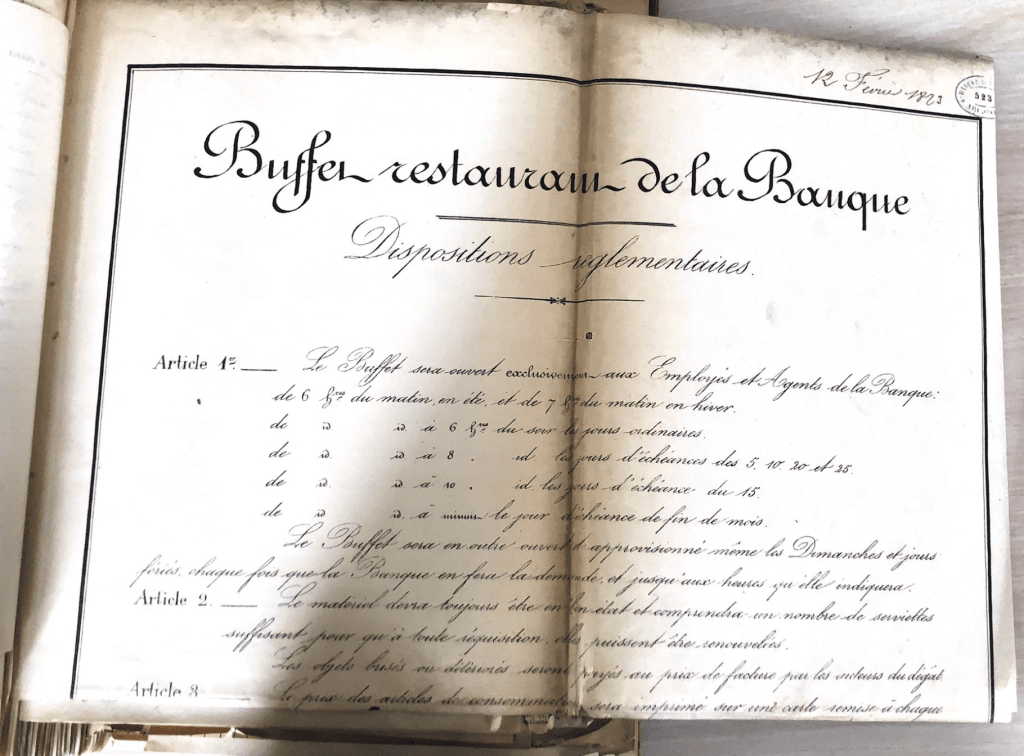 12 Février 1873
523
Buffet restaurant de la Banque
Dispositions réglementaires.
Article 1er. Le Buffet sera ouvert exclusivement aux Employés et Agents de la Banque:
de 6 hres du matin, en été, et de 7 hres du matin en hiver.
de id id à 6 hres du soir les jours ordinaires.
de id. id à 8 . id les jours d'échéances des 5, 10, 20 et 25.
de id. id à 10 . id. les jours d'échéance du 15.
de id. id. à minuit le jour d'échéance de fin de mois.
Le Buffet sera en outre ouvert et approvisionné même les Dimanches et jours
fériés, chaque fois que la Banque en fera la demande, et jusqu'aux heures qu'elle indiquera.
Article 2. Le matériel devra toujours être en bon état et comprendra un nombre de serviettes
suffisant pour qu'à toute réquisition, elles puissent être renouvelées.
Les objets brisés ou détériorés seront payés au prix de facture par les auteurs du dégât.
Article 3 Le prix des articles de consommation sera imprimé sur une carte remise à chaque